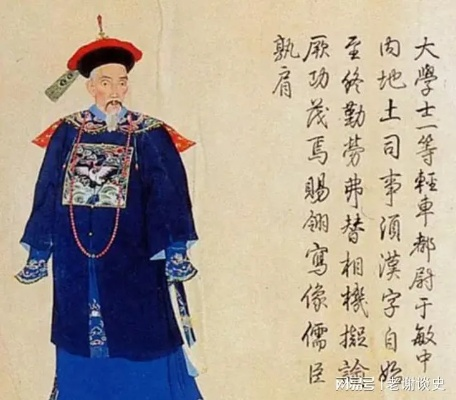 大學士一等輕車都尉于敏中
內地土司事須漢字自始
至終勤勞弗替相機擬諭
厥功茂焉賜翎寫像儒臣
孰肩
搜狐号@老谢谈史